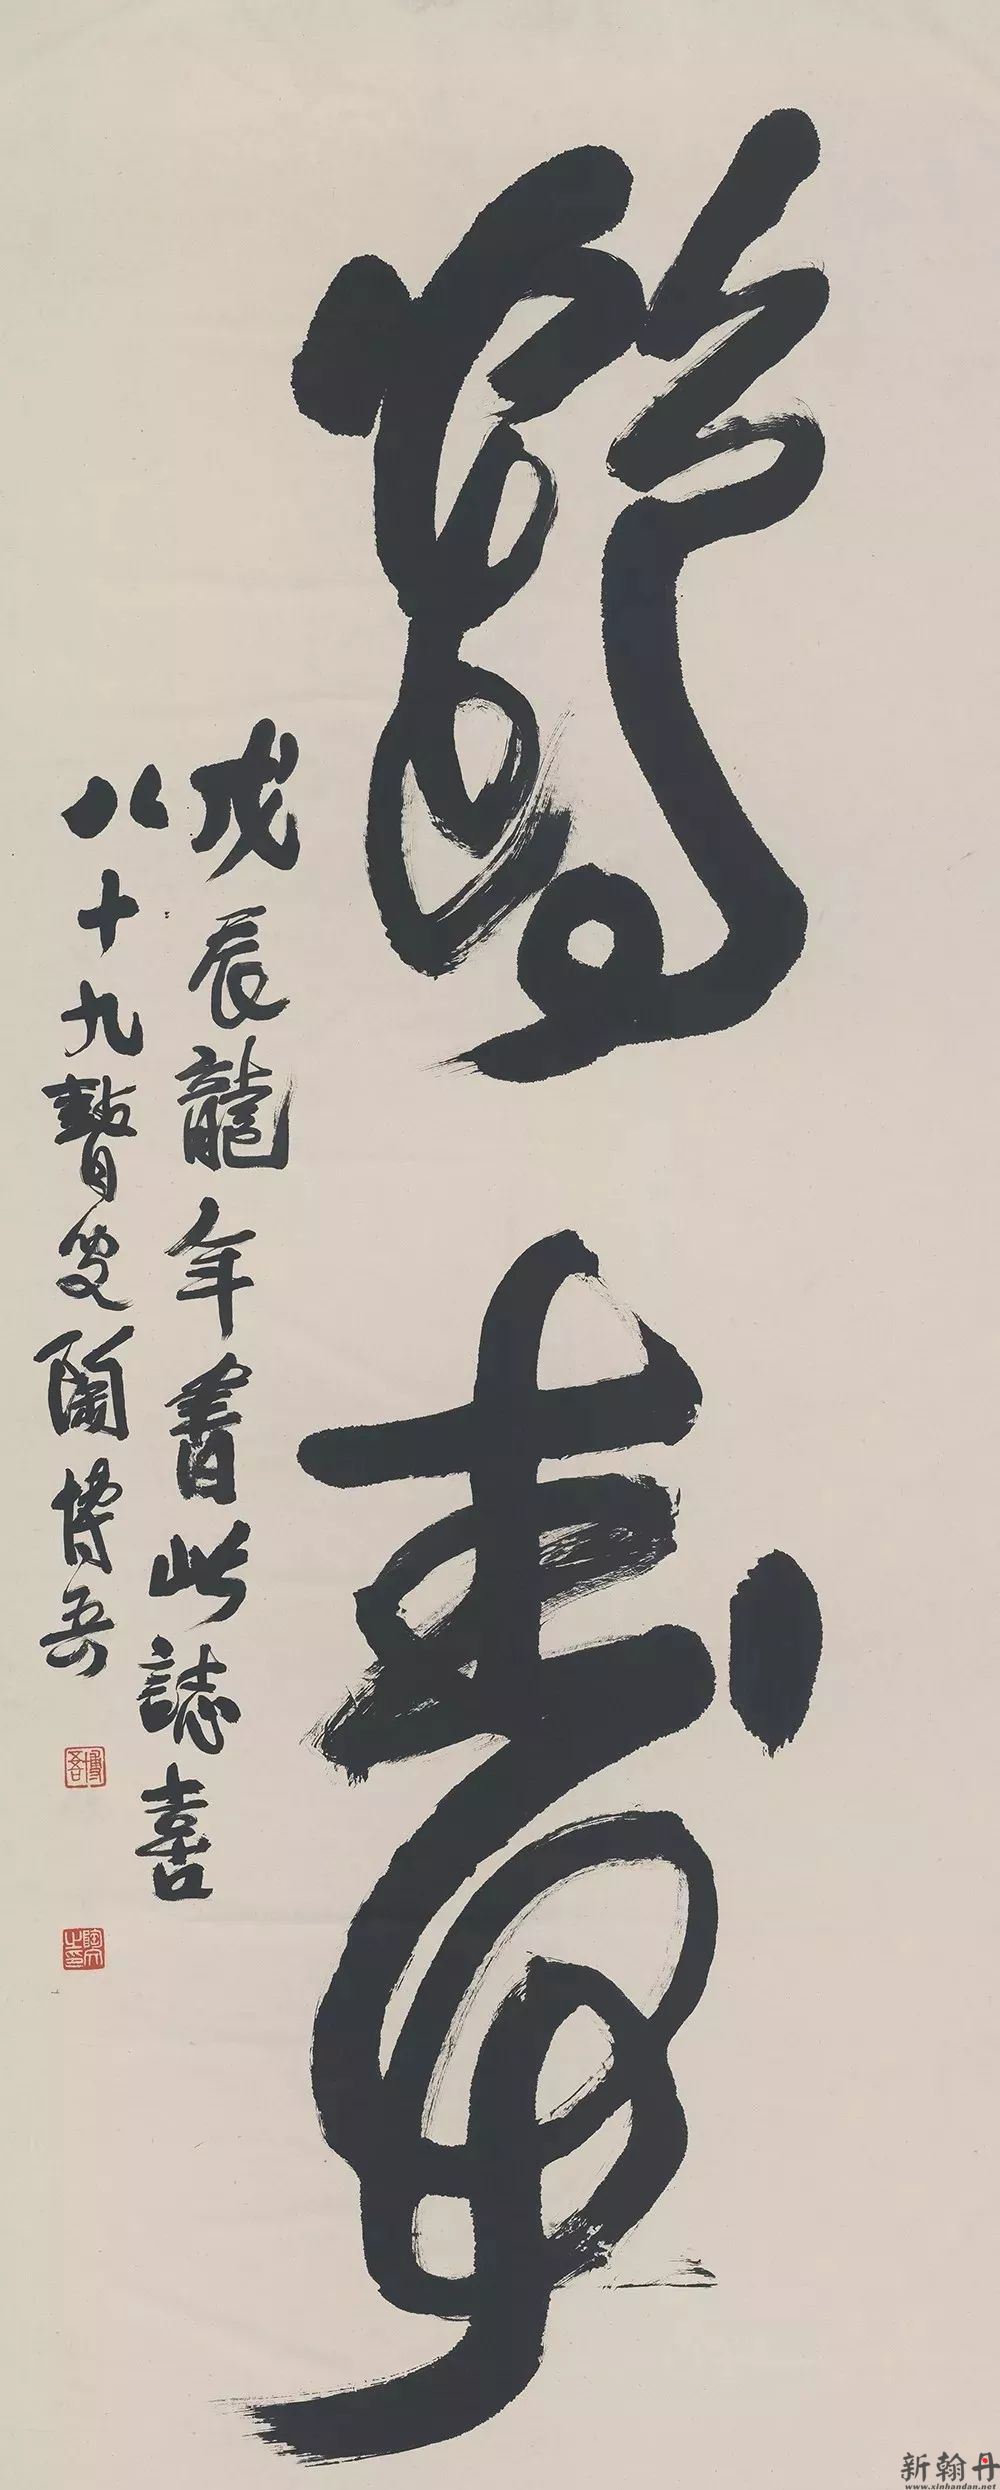 鶴壽
戊辰龍年書此誌喜
八十九瞽叟陶博吾
博吾
新翰丹
www.xinhandan.net